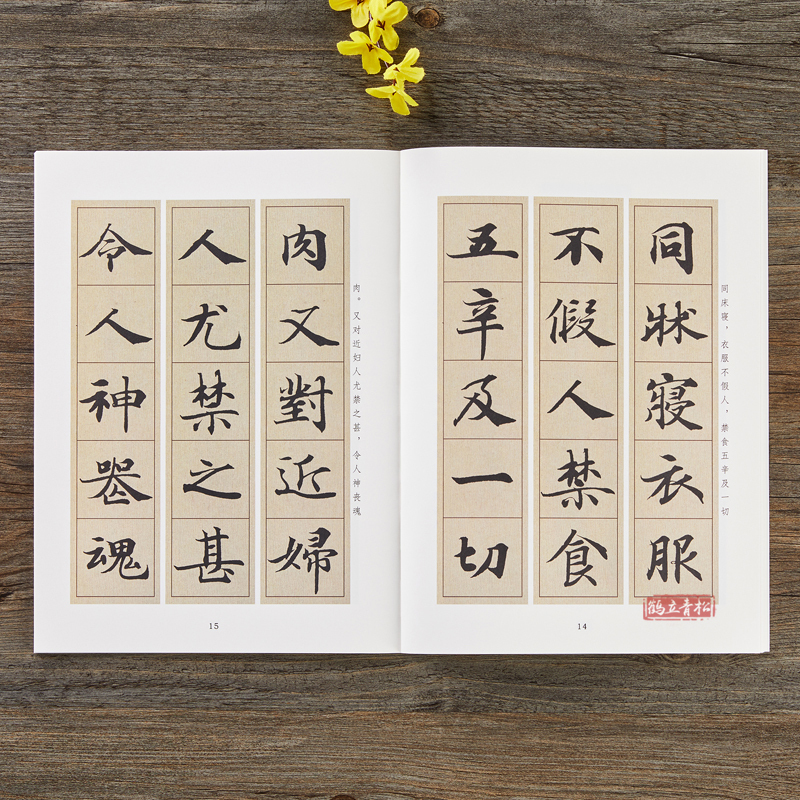 同牀寢衣服
不假人禁食
五辛及一切
同床寝，衣服不假人，禁食五辛及一切
14
鹤立青松
肉又對近婦
人尤禁之甚
令人神喪魂
肉。又对近妇人尤禁之甚，令人神丧魂
15